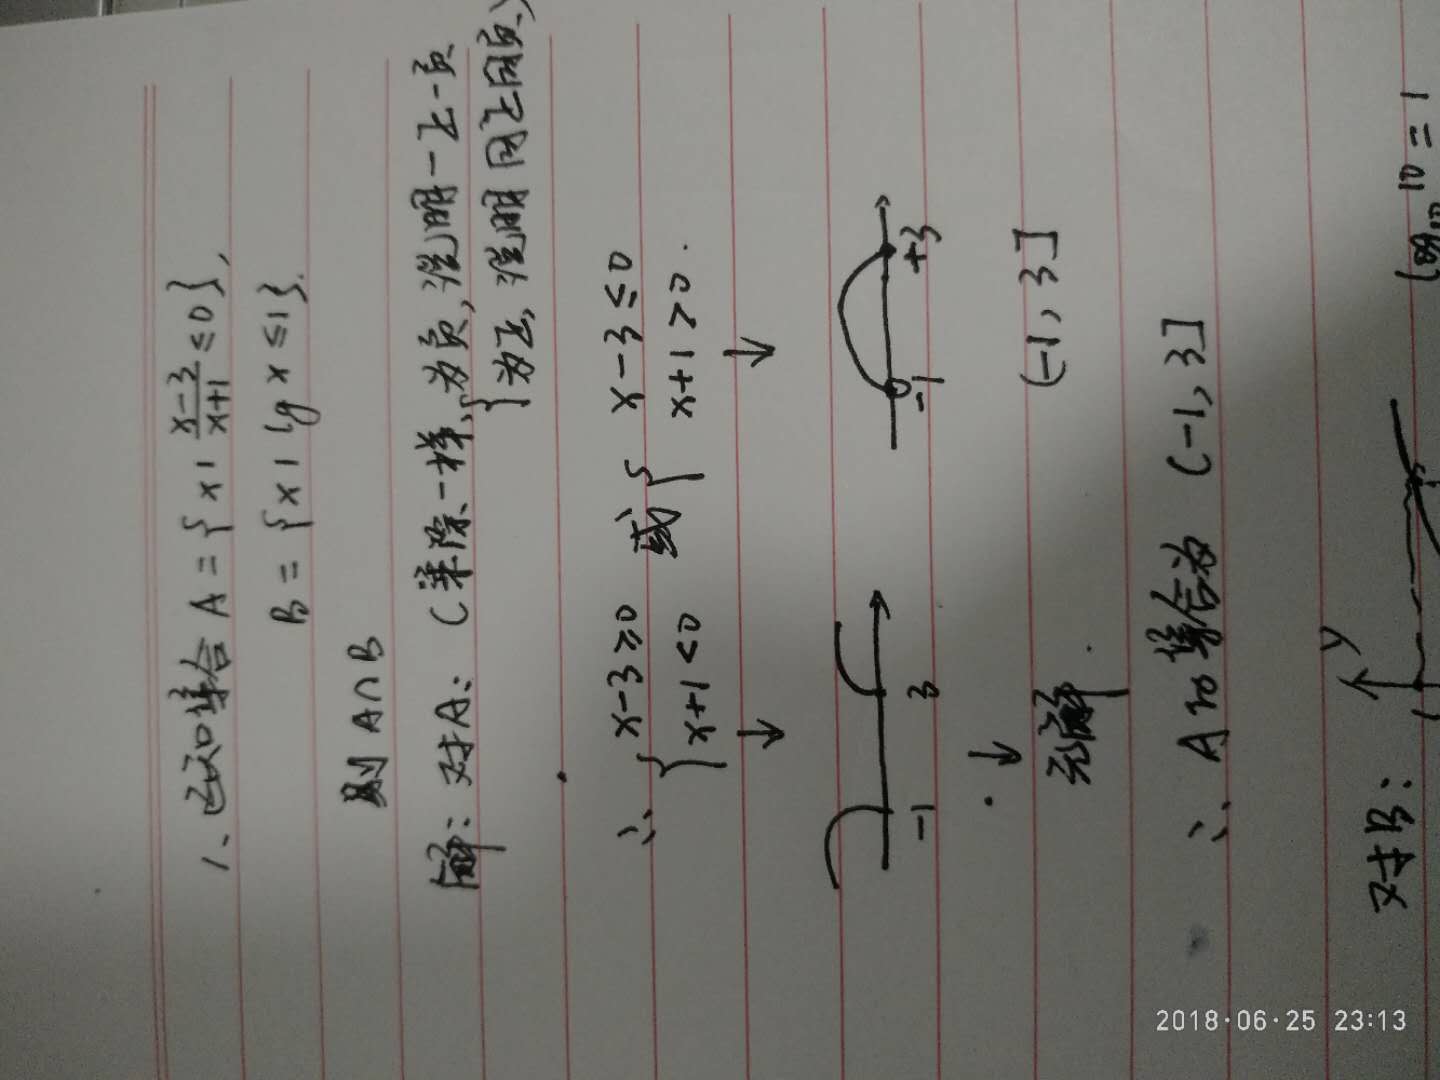 1、已知集合 A={x|\frac{x-3}{x+1}≤0},
B={x|lg x≤1}.
则 A∩B
解:对A:(乘除一样、为负,说明一正一负
为正,说明同正同负)
∴ {x-3≥0 或 {x-3≤0
x+1<0 x+1>0.
↓ ↓
-1 3 -1 +3
↓
无解. (-1,3]
∴ A的集合为 (-1,3]
对B: y
1 10=1
2018·06·25 23:13